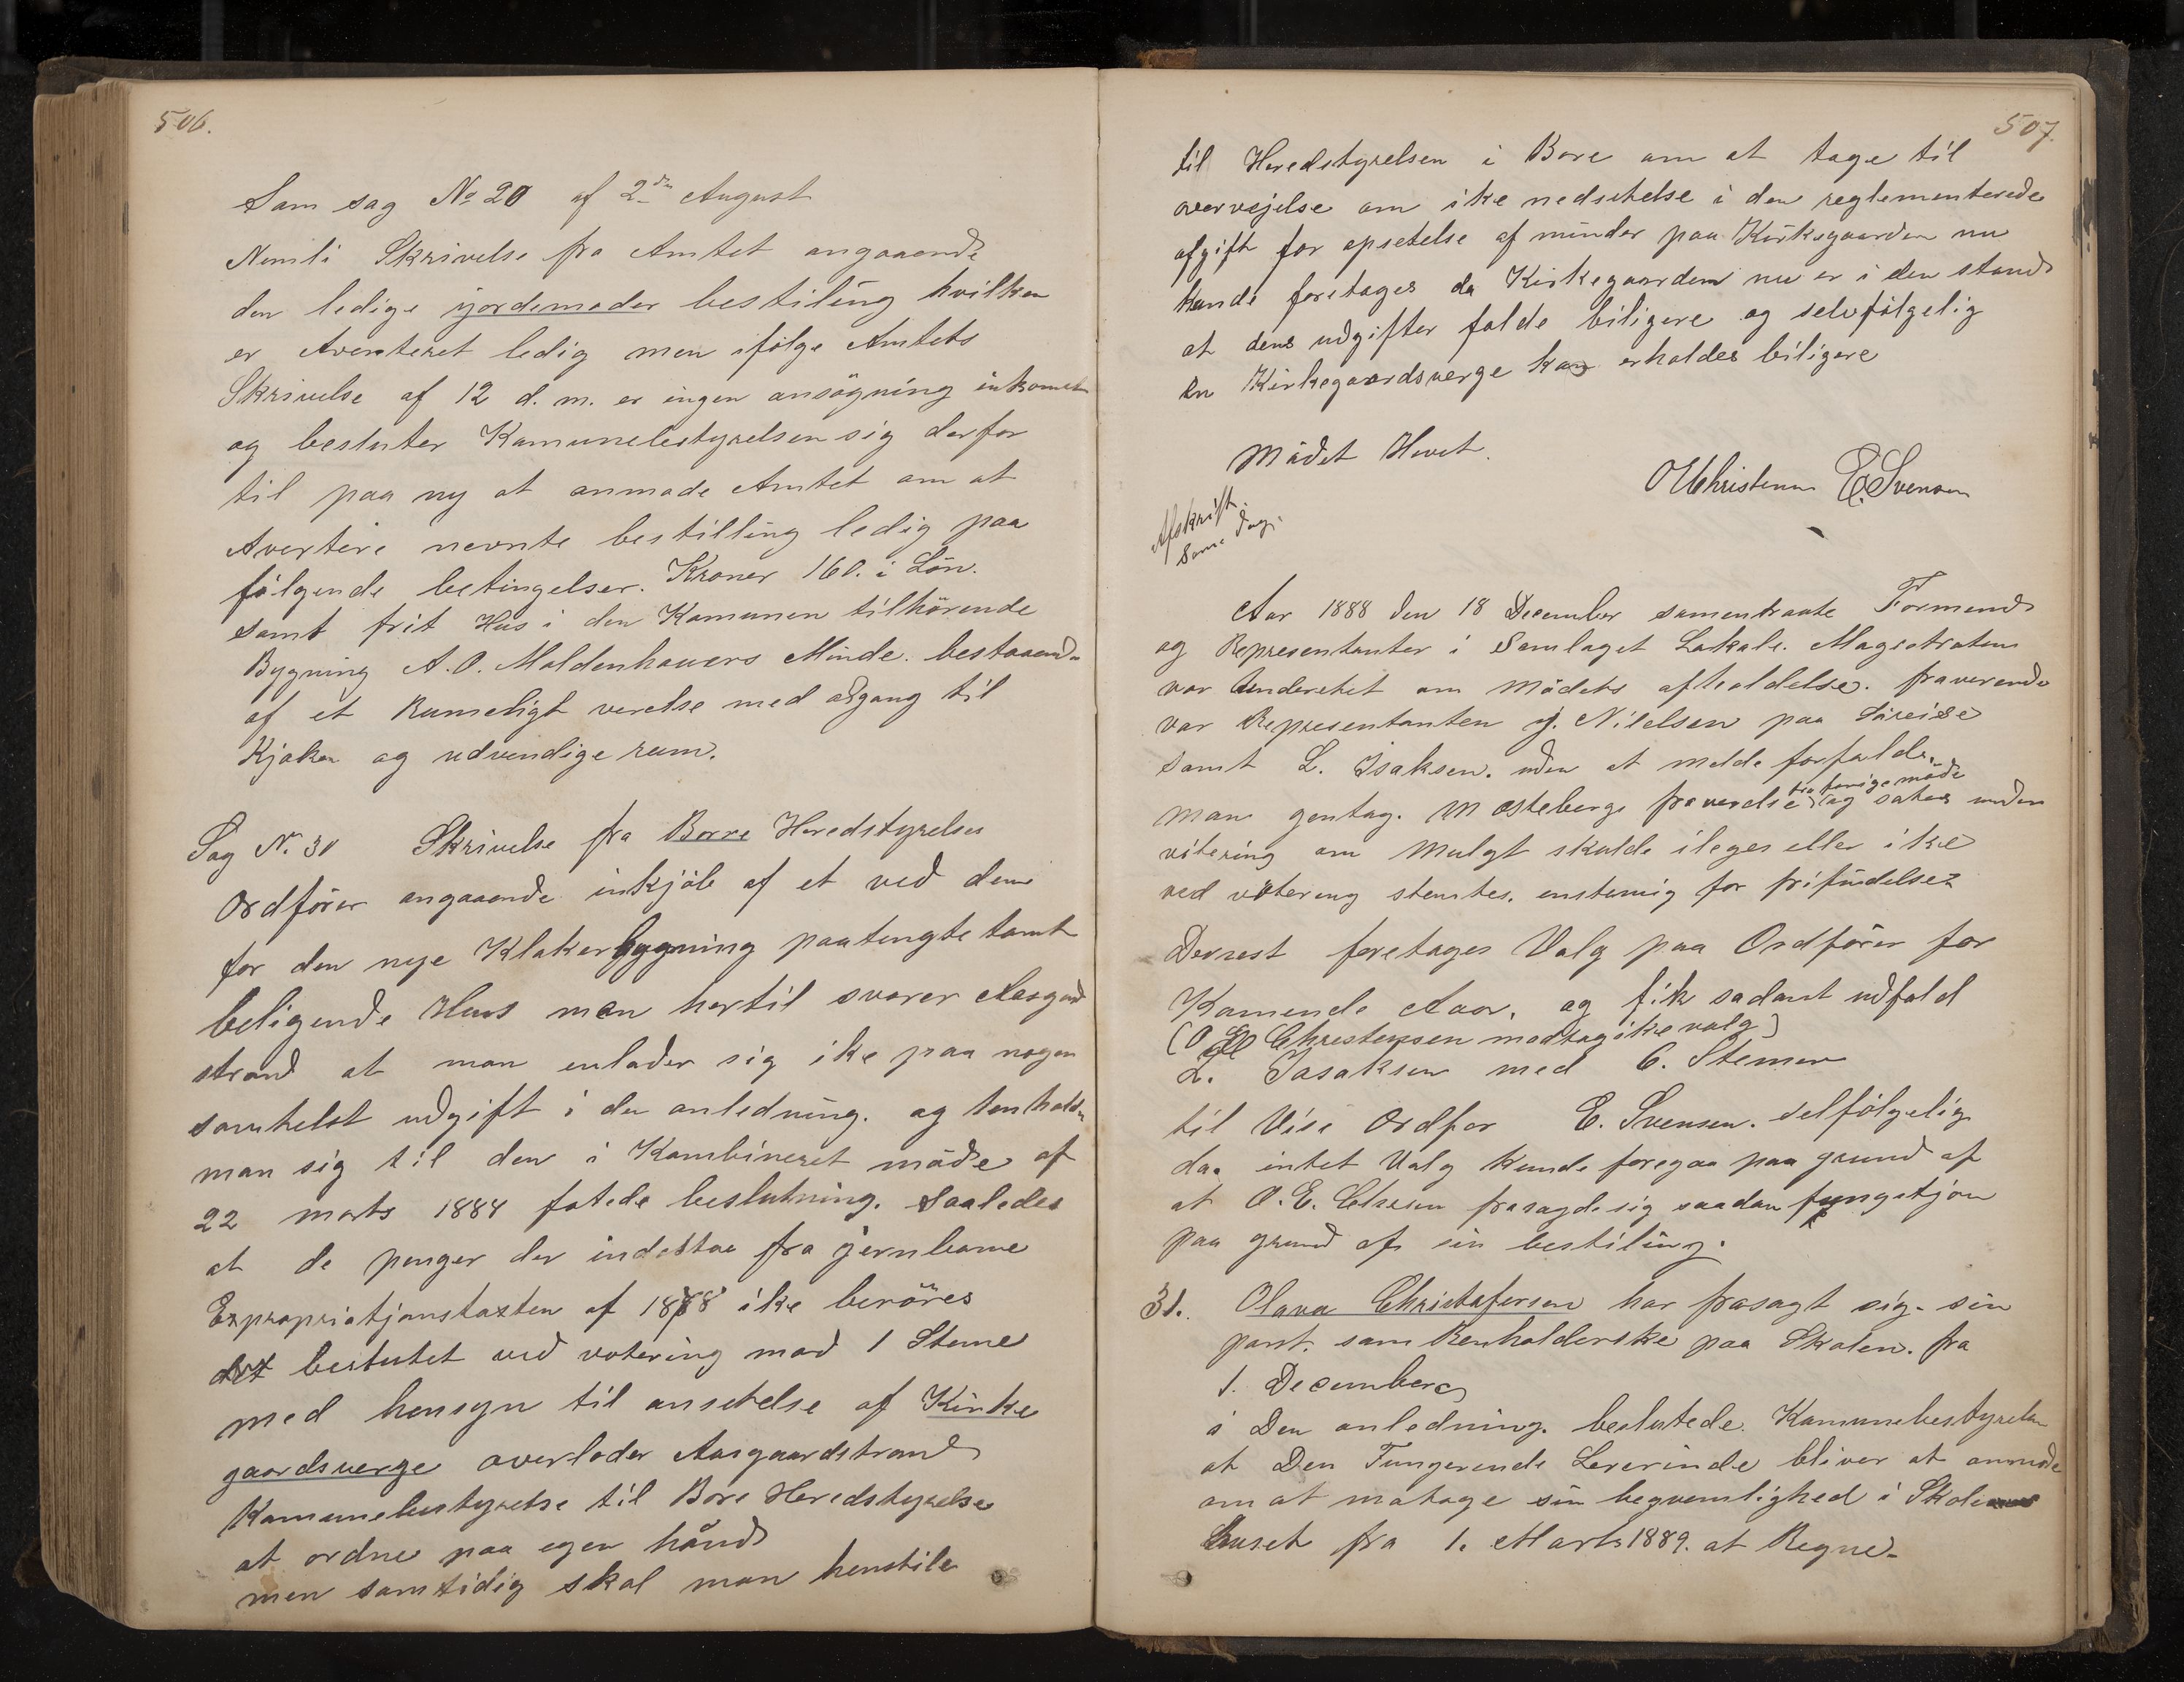 506.
Som sag No 20 af 2den August
Nemli Skrivelse fra Amtet angaaende
den ledige jordemoder bestiling hvilken
er Averteret ledig men ifølge Amtets
Skrivelse af 12 d. m. er ingen ansögning inkomet
og besluter Kamunebestyrelsen sig derfor
til paa ny at anmode Amtet om at
Avertere nevnte bestilling ledig paa
fölgende betingelser. Kroner 160. i Lön.
samt frit Hus i den Kamunen tilhörende
Bygning A. O. Moldenhauers Minde. bestaaende
af et Rumeligt verelse med adgang til
Kjøken og udvendige rum.
Sag N. 30 Skrivelse fra Borre Heredstyrelses
Ordförer angaaende inkjöb af et ved den
for den nye Klokerbygning paatengte tomt
beligende Huus man hertil svarer Aasgaard
strand at man enlader sig ike paa nogen
somhelst udgift i den anledning. og henholder
man sig til den i Kombineret möde af
22 marts 1884 fatede beslutning. Saaledes
at de penger der indestaa fra jernbane
Expropriatjonstaxten af 1888 ike beröres
det beslutet ved votering mod 1 Steme
med hensyn til ansetelse af Kirke
gaardsverge overlader Aasgaardstrand
Kamunebestyrelse til Bore Heredstyrelse
at ordne paa egen hånd
men samtidig skal man henstile
507.
til Heredstyrelsen i Bore om at tage til
overvejelse om ike nedsetelse i den reglementerede
afgift for opsetelse af minder paa Kirkegaarden nu
kunde foretages da Kirkegaarden nu er i den stand
at dens udgifter falde biligere og selvfölgelig
en Kirkegaardsverge kan erholdes biligere
Mödet Hevet.
O E Christensen E. Svensen
Afskrift.
Same dag.
Aar 1888 den 18 December samentraate Formend
og Representanter i Samlaget Lokale. Magistraten
var Underetet om Mödets afholdelse. fraverende
var Representanten J. Nilelsen paa Söreise
samt L. Isaksen. uden at melde forfald.
fra forige möde
man gentog. M Østebergs fraverelse og sates under
vötering om Mulgt skulde ileges eller ike
ved vötering stemtes. enstemig for frifindelse
Dernest foretages Valg paa Ordförer for
Komende Aaar, og fik sadant udfald
(O E Christensen modtog ike valg)
L. Isaksen med 6. Stemer
til Vise Ordför E. Svensen. selfölgelig
da intet Valg kunde foregaa paa grund af
at O. E. Chrsen frasagde sig saadan fungstjon
paa grund af sin bestiling.
31. Olava Christofersen har frasagt sig sin
post. som Renholderske paa Skolen. fra
1. December
i Den anledning. beslutede. Kamunebestyrelsen
at Den Fungerende Lererinde bliver at anmode
om at motage sin beqvemlighed i Skole
huset fra 1. Marts 1889. at Regne-